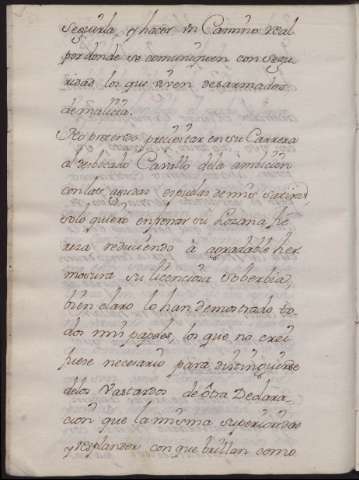 seguirla, y hacer un Camino real
por donde se comuniquen con segu-
ridad los que viven desarmados
de malicia.
No pretendo precipitar en su Carrera
al desbocado Cavallo de la ambicion
con las agudas espuelas de mis satiras,
solo quiero enfrenar su lozana fie-
reza reduciendo à agradable her-
mosura su licenciosa soberbia,
bien claro lo han demostrado to-
dos mis papeles, los que no creì
fuese necesario para distinguirse
de los Vastardos de otra Declara-
cion que la misma superioridad
y resplandor con que brillan como